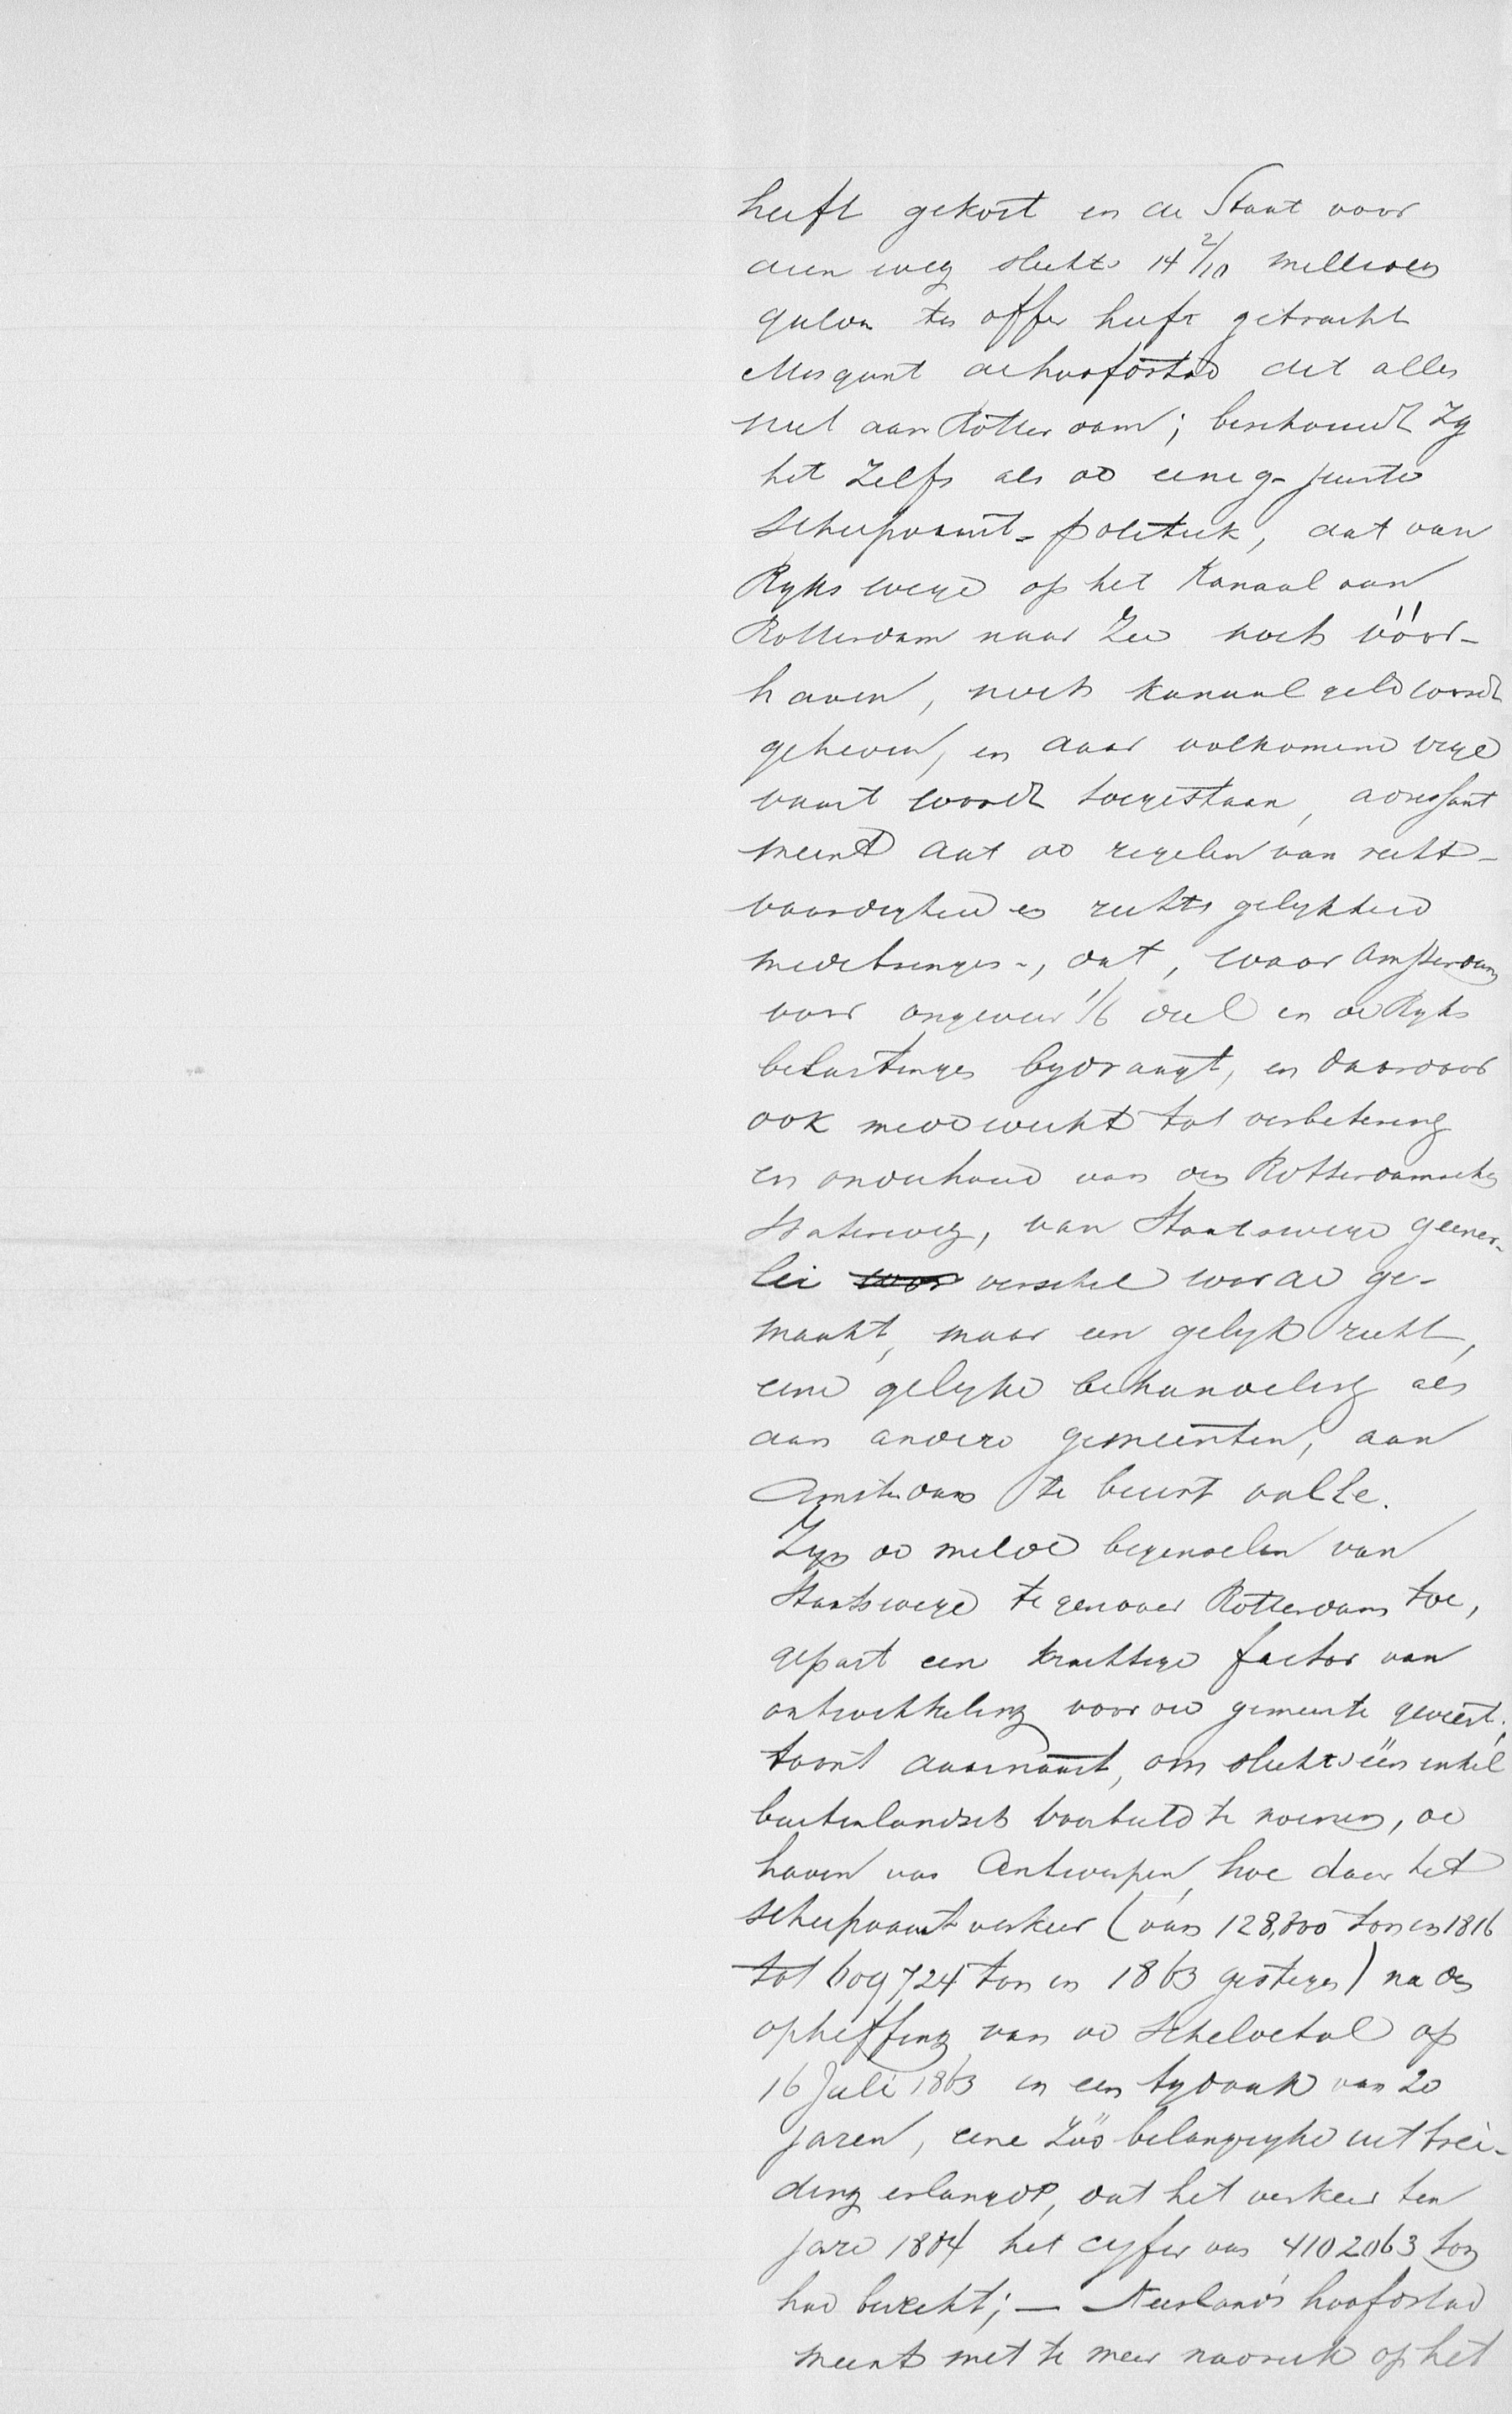 heeft gekost en de Staat voor
dien weg slechts 14 2/10 millioen
gulden ten offer heeft gebracht
Misgunt de hoofdstad dit alles
niet aan Rotterdam; beschouwt zy
het zelfs als de eenig juiste
scheepvaart-politiek, dat van
Ryks wege op het Kanaal van
Rotterdam naar Zee noch vóór-
haven, noch kanaal geld wordt
geheven, en daar volkomene vrye
vaart wordt toegestaan, adressant
meent dat de regelen van recht-
vaardigheid en rechts gelykheid
medebrengen, dat, waar Amsterdam
voor ongeveer 1/6 deel in de Ryks
belastingen bydraagt, en daardoor
ook medewerkt tot verbetering
en onderhoud van den Rotterdamschen
Waterweg, van Staatswege geener-
lei voor verschil worde ge-
maakt, maar een gelyk recht,
eene gelyke behandeling als
aan andere gemeenten, aan
Amsterdam te beurt valle.
Zyn de milde beginselen van
Staatswege tegenover Rotterdam toe,
gepast een krachtige factor van
ontwikkeling voor die gemeente geweest;
toont daarnaast, om slechts één enkel
buitenlandsch voorbeeld te noemen, de
haven van Antwerpen, hoe daar het
scheepvaartverkeer (van 128,300 ton in 1816
tot 609724 ton in 1863 gestegen) na de
opheffing van de Scheldetol op
16 Juli 1863 in een tydvak van 20
jaren, eene zóó belangryke uitbrei-
ding erlangde, dat het verkeer ten
jare 1884 het cyfer van 4102063 ton
had bereikt; — Neerland's hoofdstad
meent met te meer nadruk op het